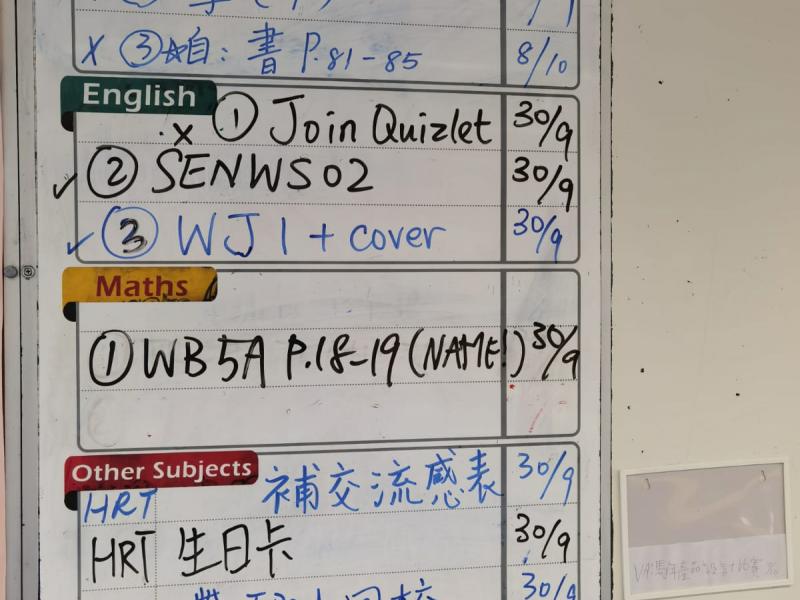 X ③☆自：書 P.81-85 8/10
English
x ① Join Quizlet 30/9
✓ ② SENWS02 30/9
✓ ③ WJ1 + cover 30/9
Maths
① WB 5A P.18-19 (NAME!) 30/9
Other Subjects
HRT 補交流感表 30/9
HRT 生日卡 30/9
30/9